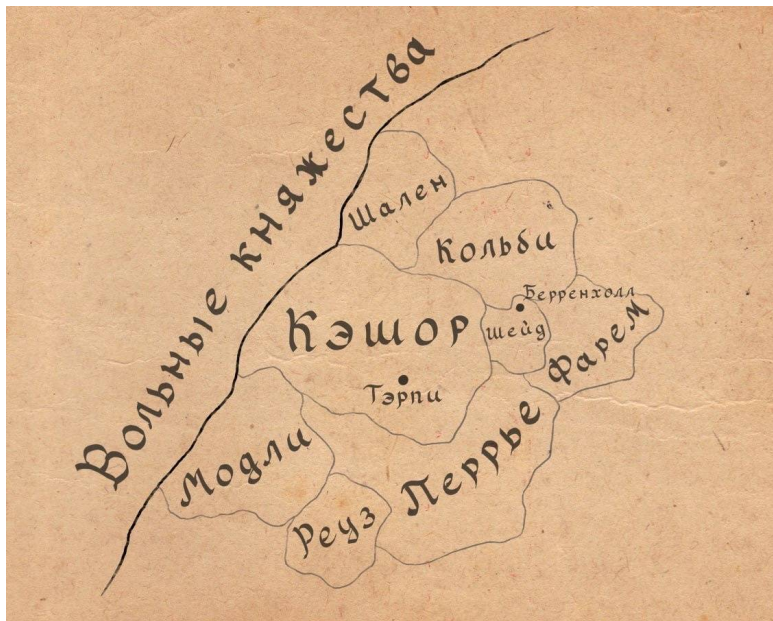 Вольные княжества
Шален
Кольби
Берренхолл
Кэшор
Шейд
Фарем
Тэрпи
Перрье
Модли
Реуз